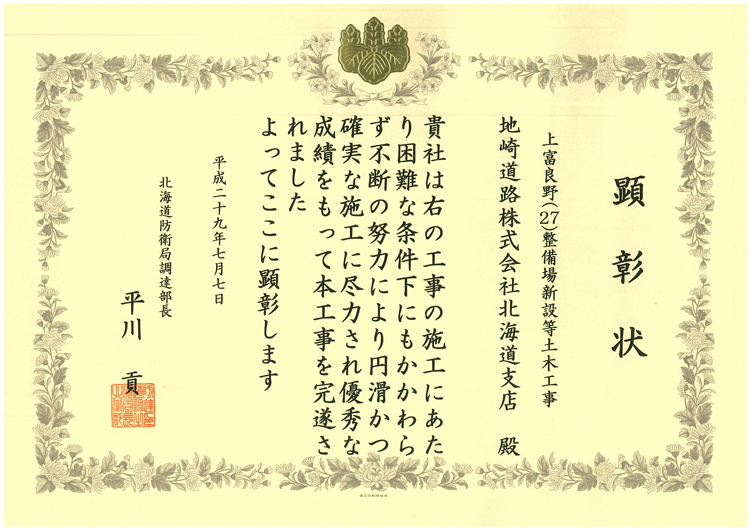 顕彰状
上富良野(27)整備場新設等土木工事
地崎道路株式会社北海道支店 殿
貴社は右の工事の施工にあた
り困難な条件下にもかかわら
ず不断の努力により円滑かつ
確実な施工に尽力され優秀な
成績をもって本工事を完遂さ
れました
よってここに顕彰します
平成二十九年七月七日
北海道防衛局調達部長
平川 貢